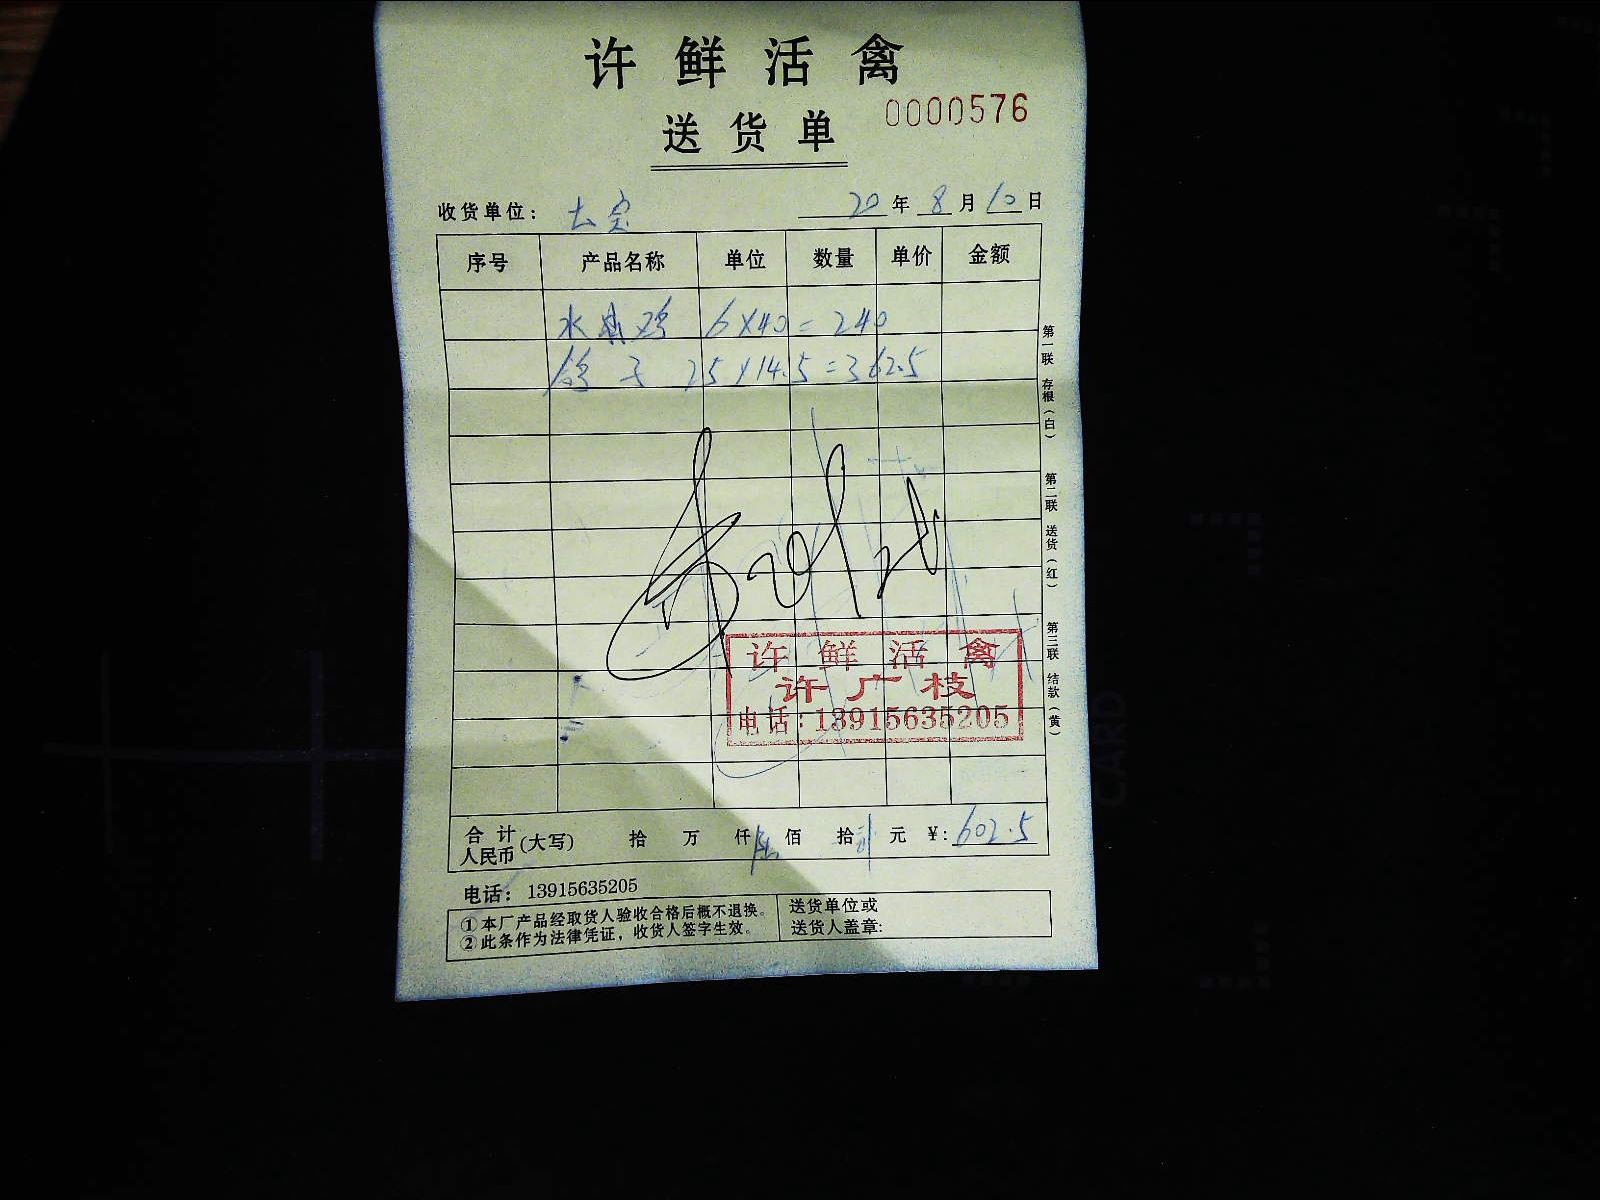 许鲜活禽
送货单
0000576
收货单位: 20年8月10日
序号 产品名称 单位 数量 单价 金额
水 鸡 6×40=240
鸽子 25×14.5=362.5
许鲜活禽
许广枝
电话:13915635205
合计人民币(大写) 拾 万 仟 陆佰 拾 贰元 ¥:602.5
电话: 13915635205
①本厂产品经取货人验收合格后概不退换。
②此条作为法律凭证，收货人签字生效。
送货单位或
送货人盖章:
第一联 存根(白) 第二联 送货(红) 第三联 结款(黄)
CARD